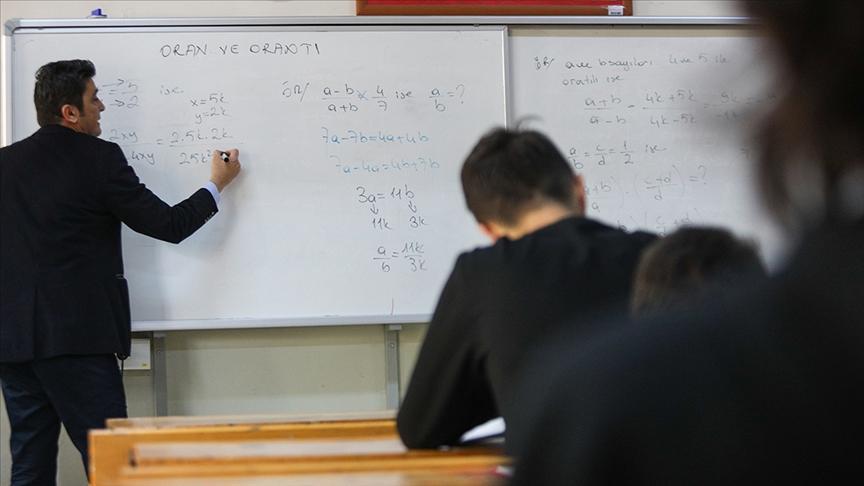 ORAN VE ORANTI
= 5/2 ise
x=5k
y=2k
2xy/4xy = 2.5k.2k/25k²
ÖR/ a-b/a+b = 4/7 ise a/b = ?
7a-7b=4a+4b
7a-4a=4b+7b
3a=11b
11k 3k
a/b = 11k/3k
ÖR/ a ve b sayıları 4 ve 5 ile
oratılı ise
a+b/a-b = 4k+5k/4k-5k = 9k
a/b = c/d = 1/2 ise
(c+d/d) = ?